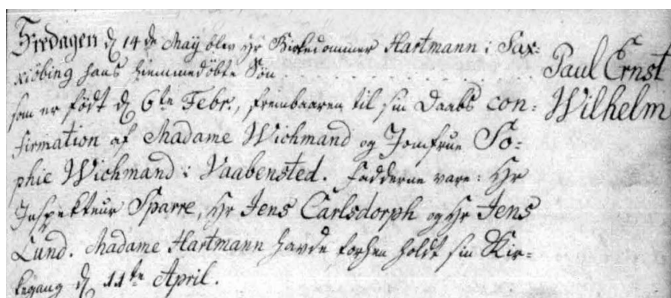 Fredagen d 14de May blev Hr Birkedommer Hartmann i Sax-
kiöbing hans hiemmedöbte Sön . . . . . . . . . . . . . . . Paul Ernst
som er född d 6te Febr., frembaaren til sin Daabs con- Wilhelm
firmation af Madame Wichmand og Jomfrue So-
phie Wichmand i Vaabensted. Fadderne vare: Hr
Inspekteur Sparre, Hr Jens Carlsdorph og Hr Jens
Lund. Madame Hartmann havde forhen holdt sin Kir-
kegang d 11te April.